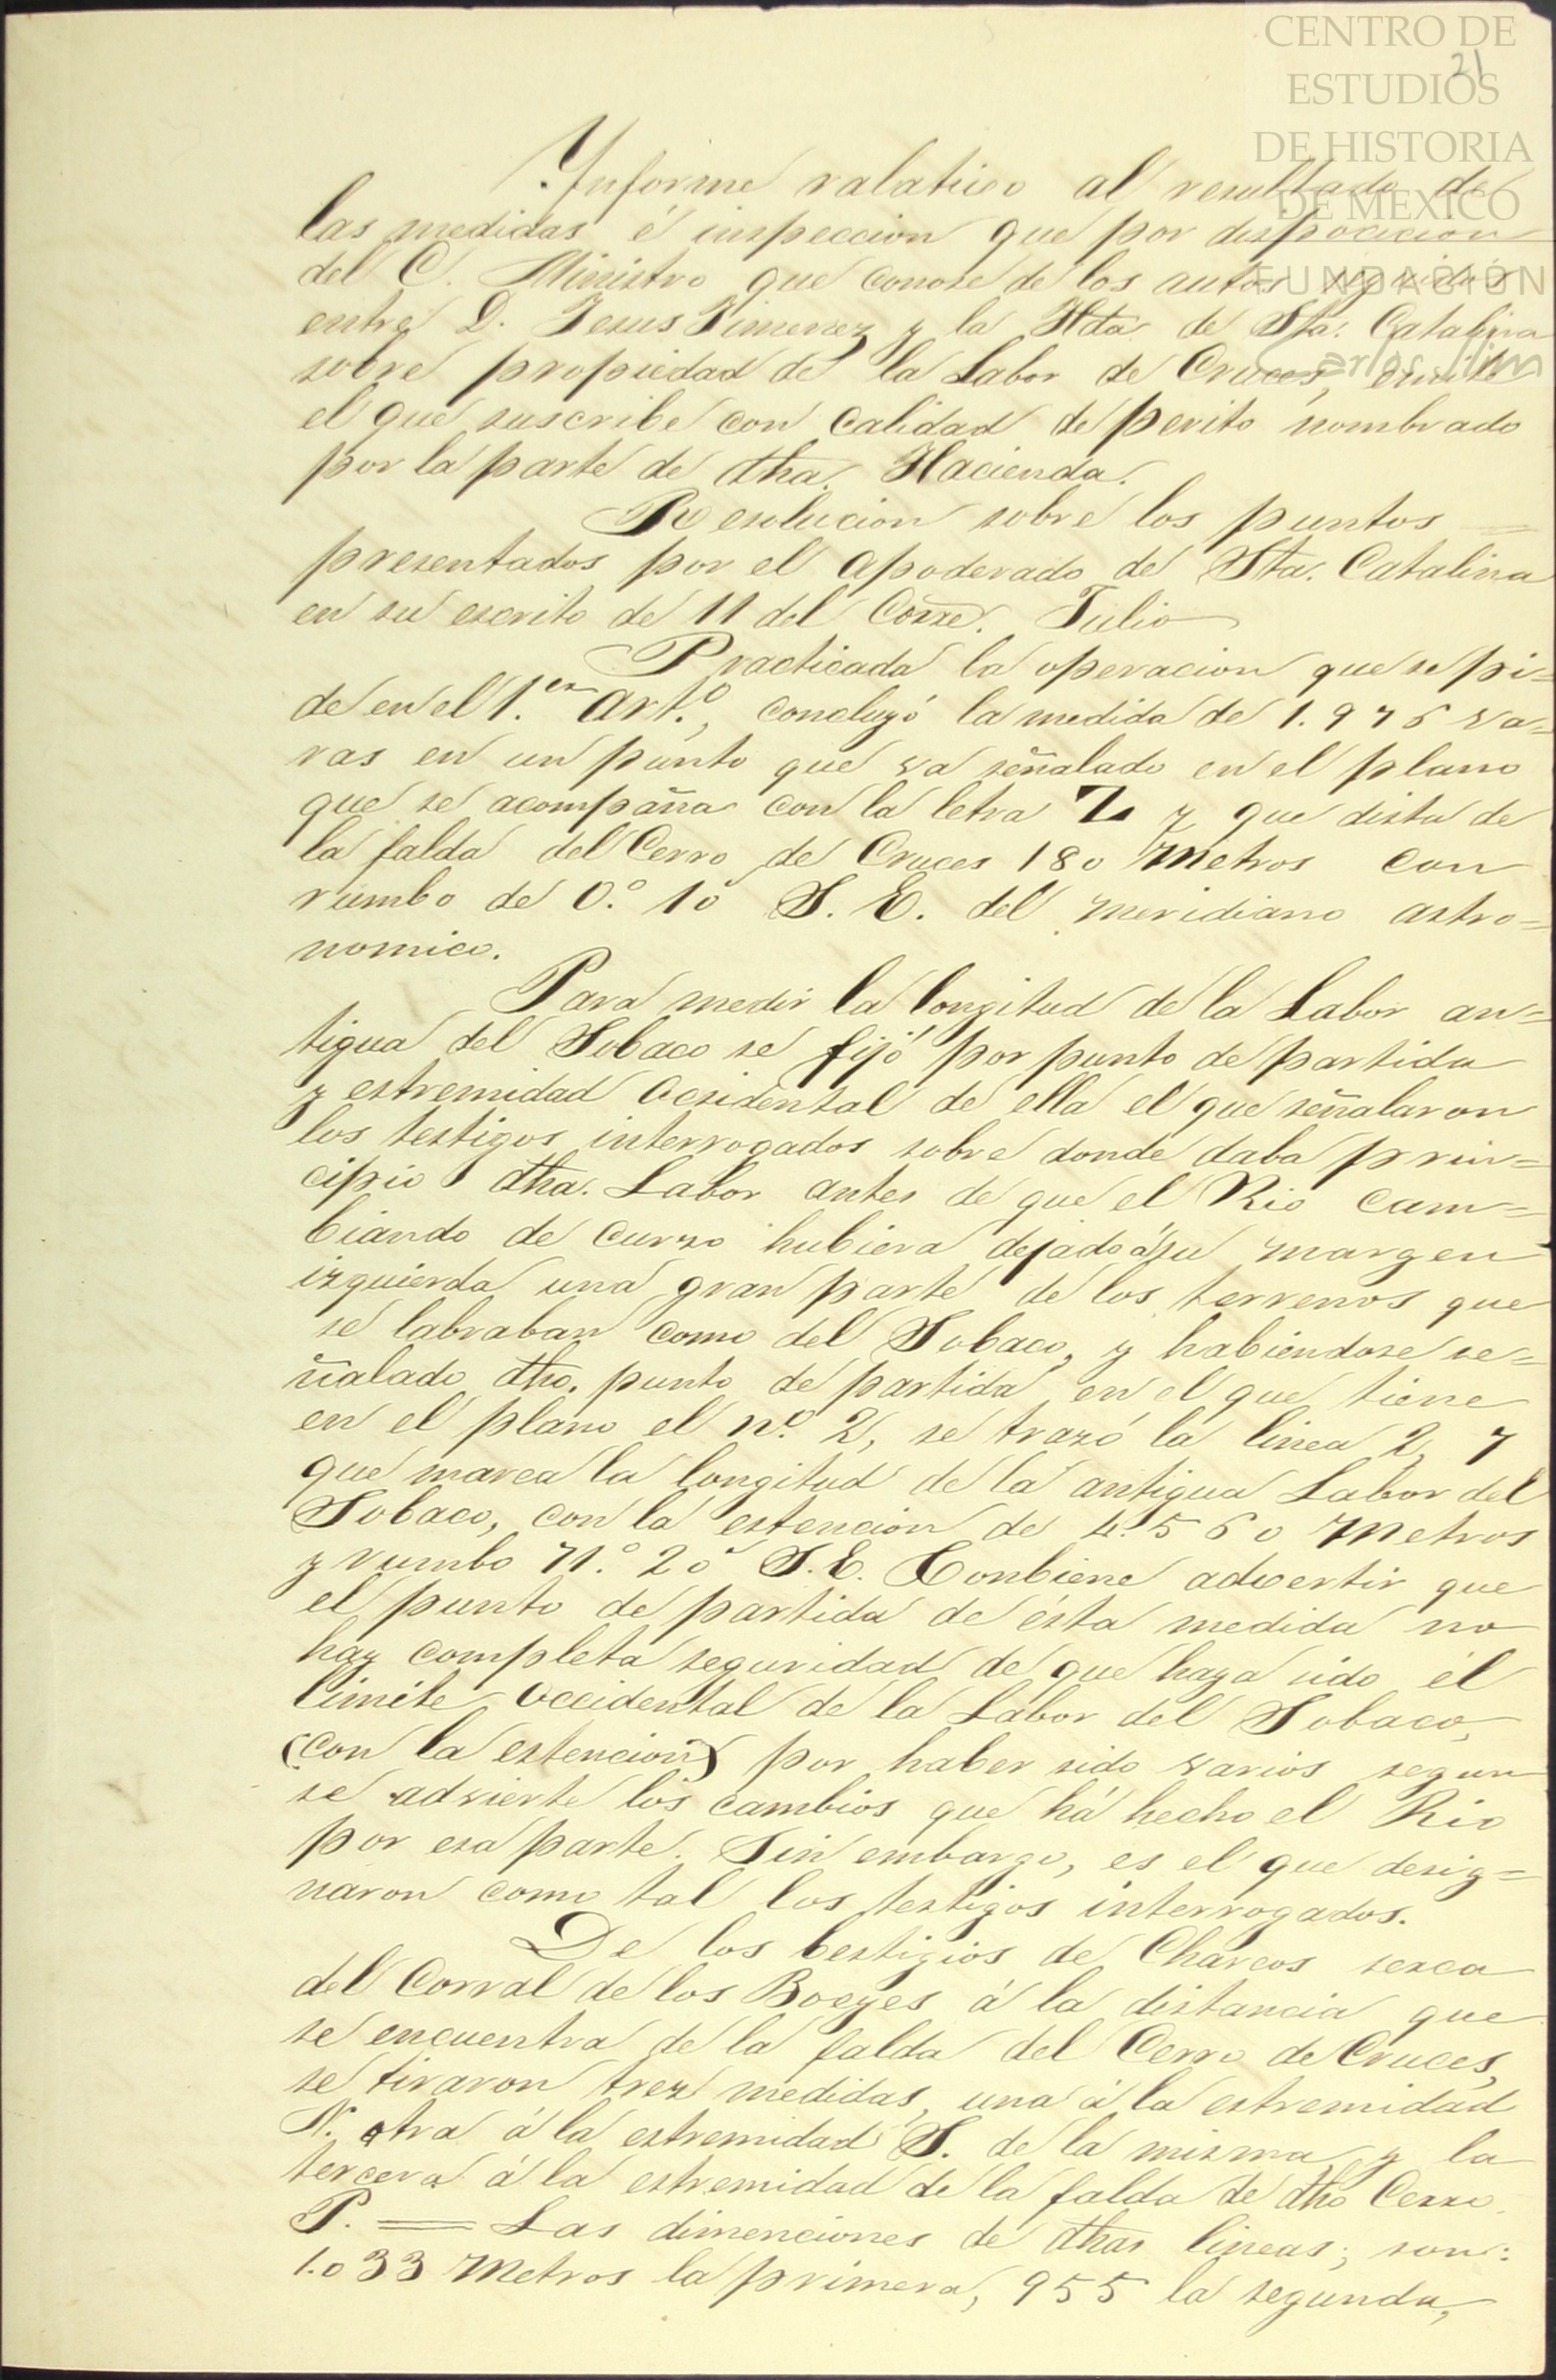 CENTRO DE
ESTUDIOS
DE HISTORIA
DE MEXICO
FUNDACIÓN
Carlos Slim
21
Informe ralativo al resultado de
las medidas é inspeccion que por disposicion
del C. Ministro que conose de los autos seguidos
entre D. Jesus Jimenez y la Hda. de Sta. Catalina
sobre propiedad de la Labor de Cruces, emite
el que suscribe con calidad de perito nombrado
por la parte de dha. Hacienda.
Resolucion sobre los puntos =
presentados por el apoderado de Sta. Catalina
en su escrito de 11 del Corre. Julio
Practicada la operacion que se pi=
de en el 1.er art.o, concluyó la medida de 1.975 va=
ras en un punto que va señalado en el plano
que se acompaña con la letra Z y que dista de
la falda del Cerro de Cruces 180 Metros con
rumbo de 0.° 10' S. E. del meridiano astro=
nomico.
Para medir la longitud de la Labor an=
tigua del Sobaco se fijó por punto de partida
y estremidad Ocsidental de ella el que señalaron
los testigos interrogados sobre donde daba prin=
cipio dha. Labor antes de que el Rio cam=
biando de curso hubiera dejado á su margen
izquierda una gran parte de los terrenos que
se labraban como del Sobaco, y habiendose se=
ñalado dho. punto de partida en el que tiene
en el plano el n.o 2, se trazó la linea 2, 7
que marca la longitud de la antigua Labor del
Sobaco, con la estencion de 4.560 Metros
y rumbo 71.° 20' S.E. Conbiene advertir que
el punto de partida de ésta medida no
hay completa seguridad de que haya sido él
limite Occidental de la Labor del Sobaco,
(con la estencion) por haber sido varios segun
se advierte los cambios que há hecho el Rio
por esa parte. Sin embargo, es el que desig=
naron como tal los testigos interrogados.
De los bestigios de Charcos serca
del Corral de los Boeyes á la distancia que
se encuentra de la falda del Cerro de Cruces,
se tiraron trez medidas, una á la estremidad
N. otra á la estremidad S. de la misma y la
tercera á la estremidad de la falda de dho Cerro
P. = Las dimenciones de dhas lineas; son:
1.033 Metros la primera, 955 la segunda,